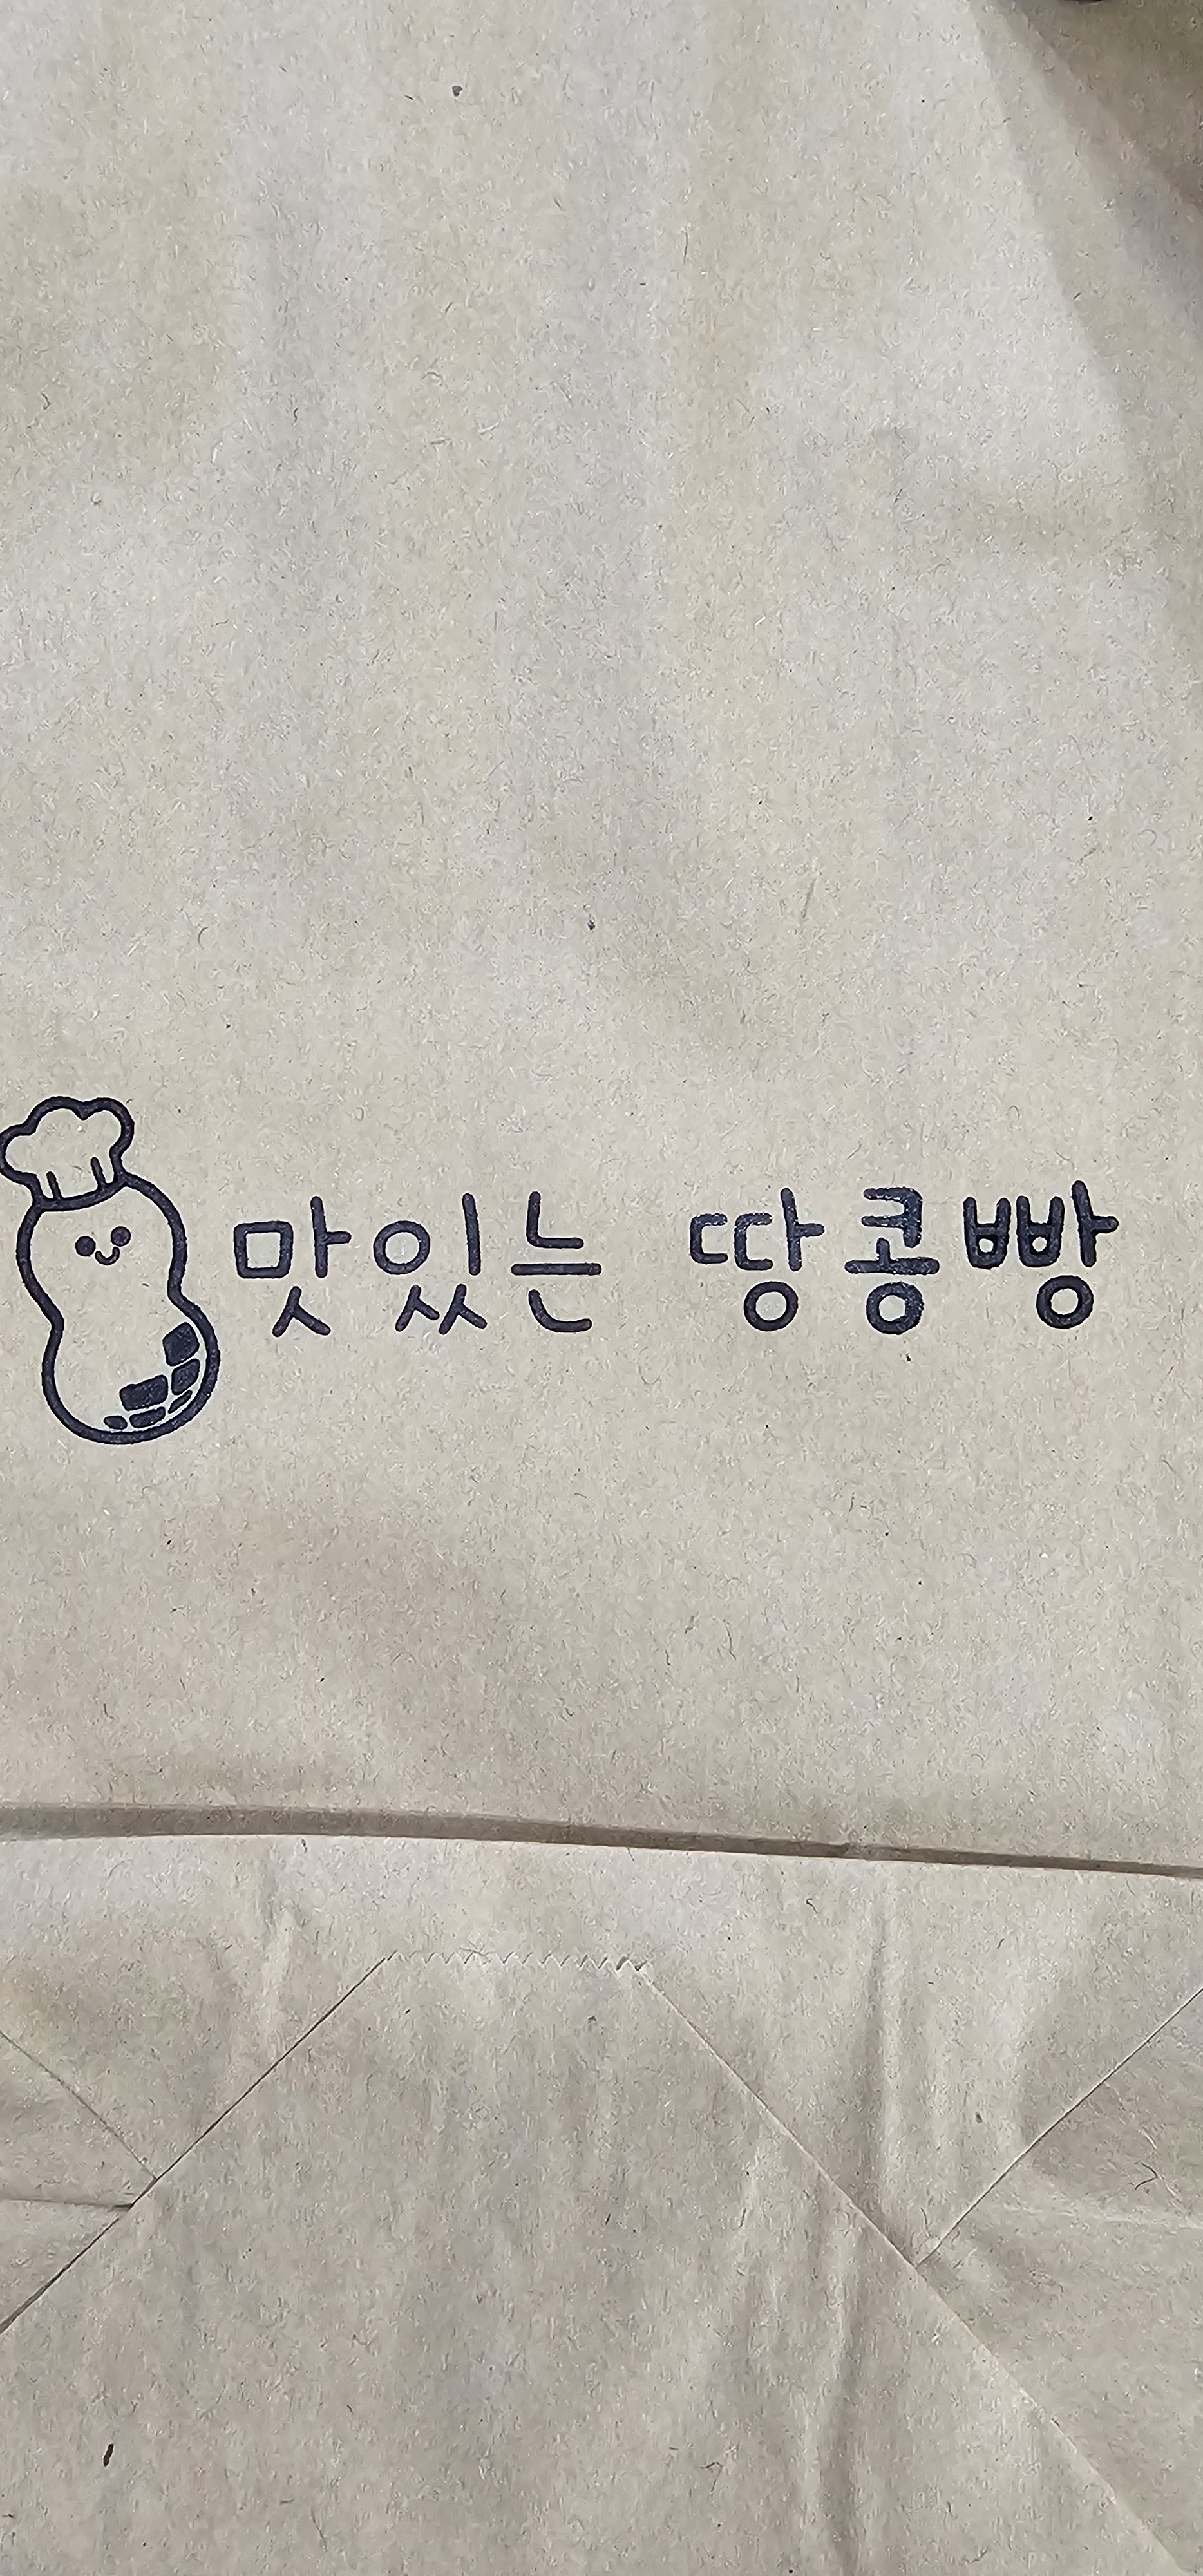 맛있는 땅콩빵